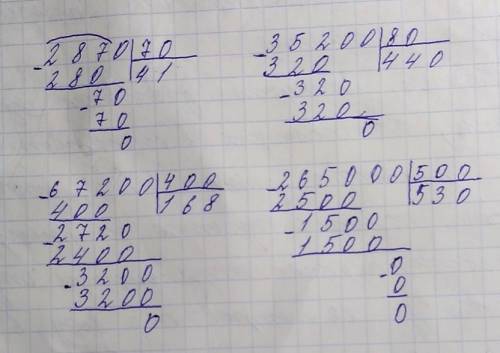 2870 70
- 280 41
- 70
70
0
- 35200 80
320 440
- 320
320
0
- 67200 400
400 168
- 2720
2400
- 3200
3200
0
- 265000 500
2500 530
- 1500
1500
- 0
0
0